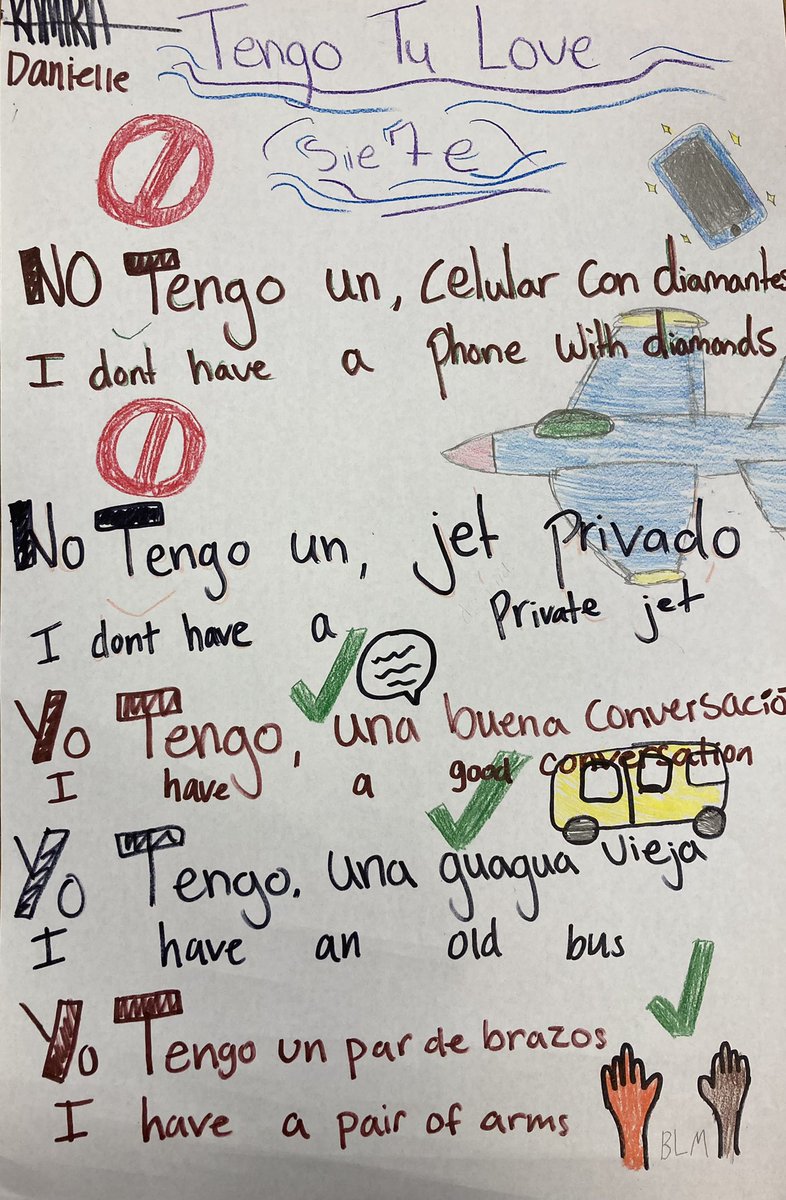 Danielle
Tengo Tu Love
(Sie7e)
No Tengo un, celular con diamantes
I dont have a phone with diamonds
No Tengo un, jet privado
I dont have a private jet
Yo Tengo, una buena conversació
I have a good conversation
Yo Tengo. una guagua vieja
I have an old bus
Yo Tengo un par de brazos
I have a pair of arms
BLM